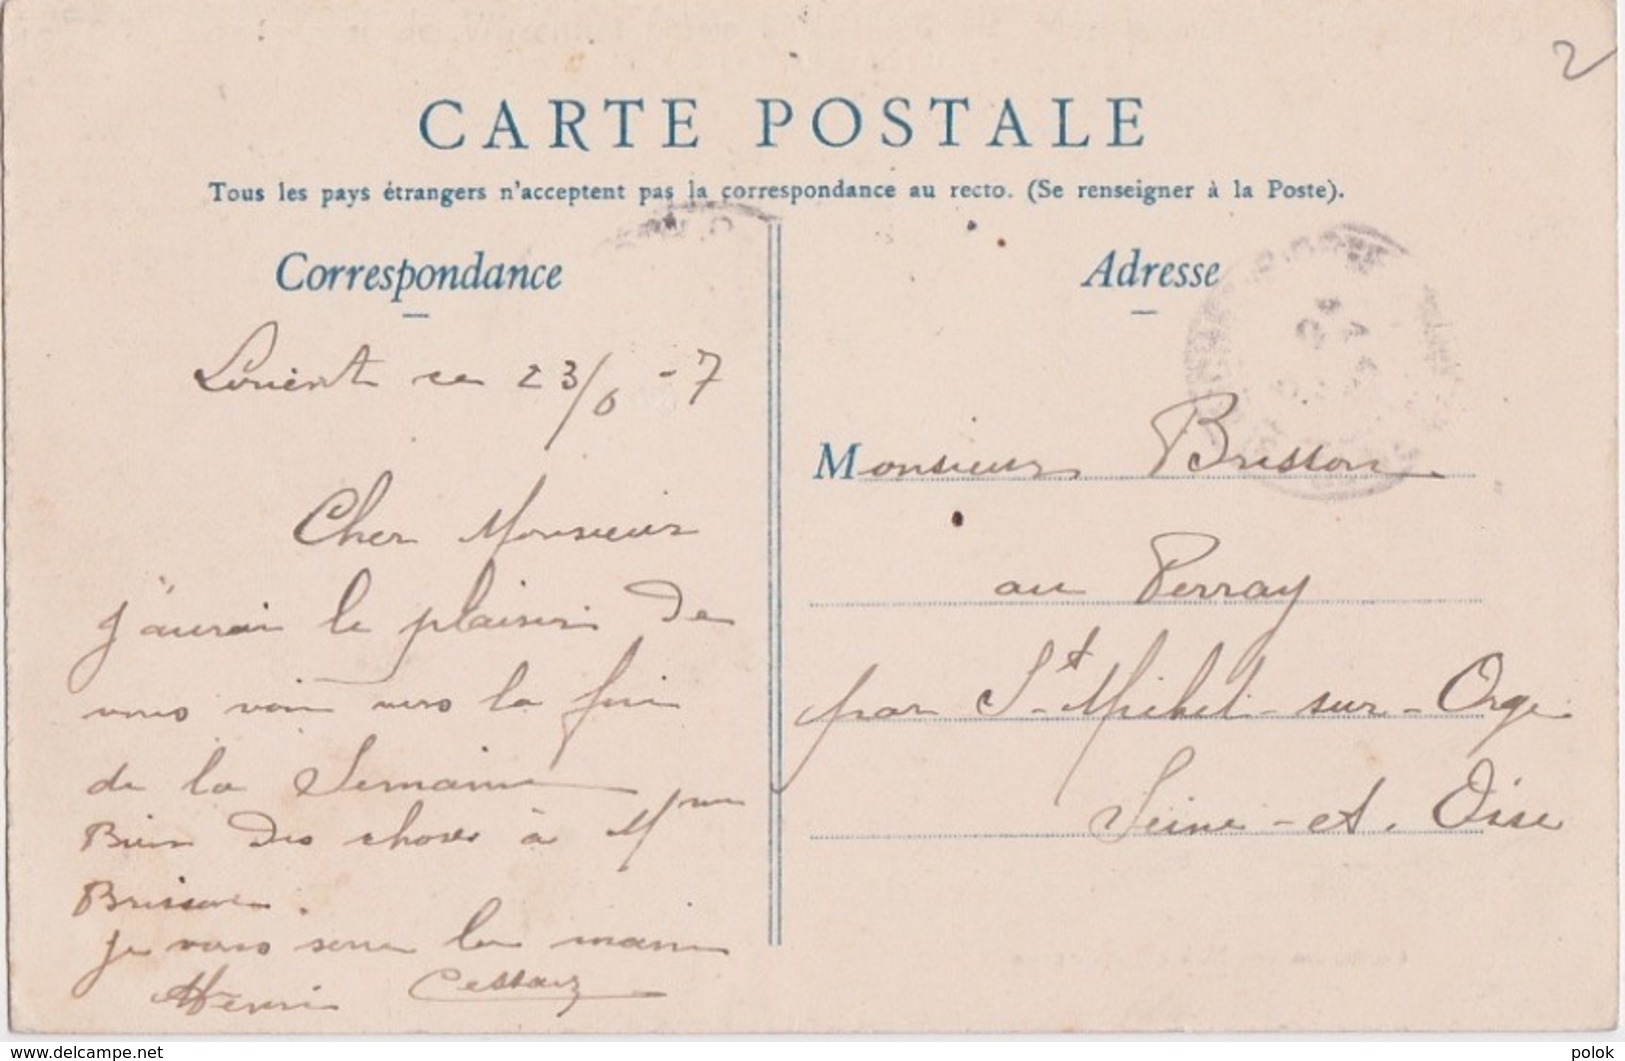 2
CARTE POSTALE
Tous les pays étrangers n'acceptent pas la correspondance au recto. (Se renseigner à la Poste).
Correspondance
Lorient ce 23/6 -7
Cher Monsieur
J'aurai le plaisir de
vous voir vers la fin
de la Semaine
Bien des choses à Mme
Brisson.
je vous serre la main
Henri
Adresse
Monsieur Brisson
au Perray
par St-Michel-sur-Orge
Seine-et-Oise
www.delcampe.net
polok